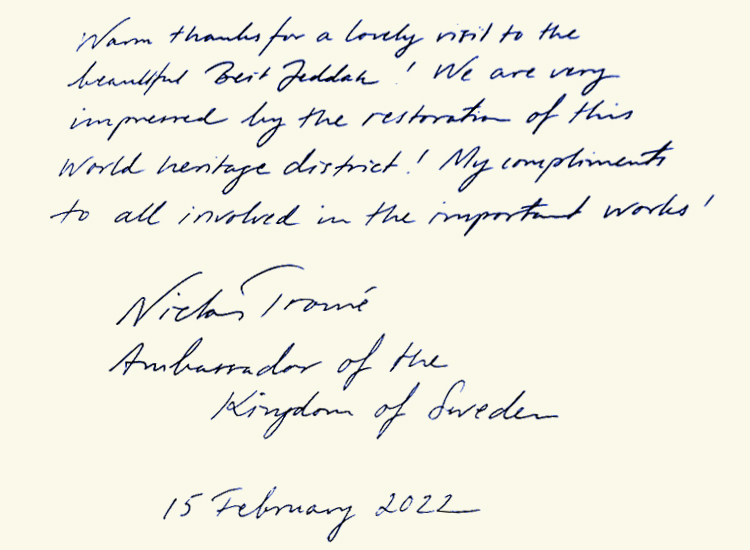 Warm thanks for a lovely visit to the
beautiful Beit Jeddah! We are very
impressed by the restoration of this
World heritage district! My compliments
to all involved in the important works!
Niclas Tromé
Ambassador of the
Kingdom of Sweden
15 February 2022